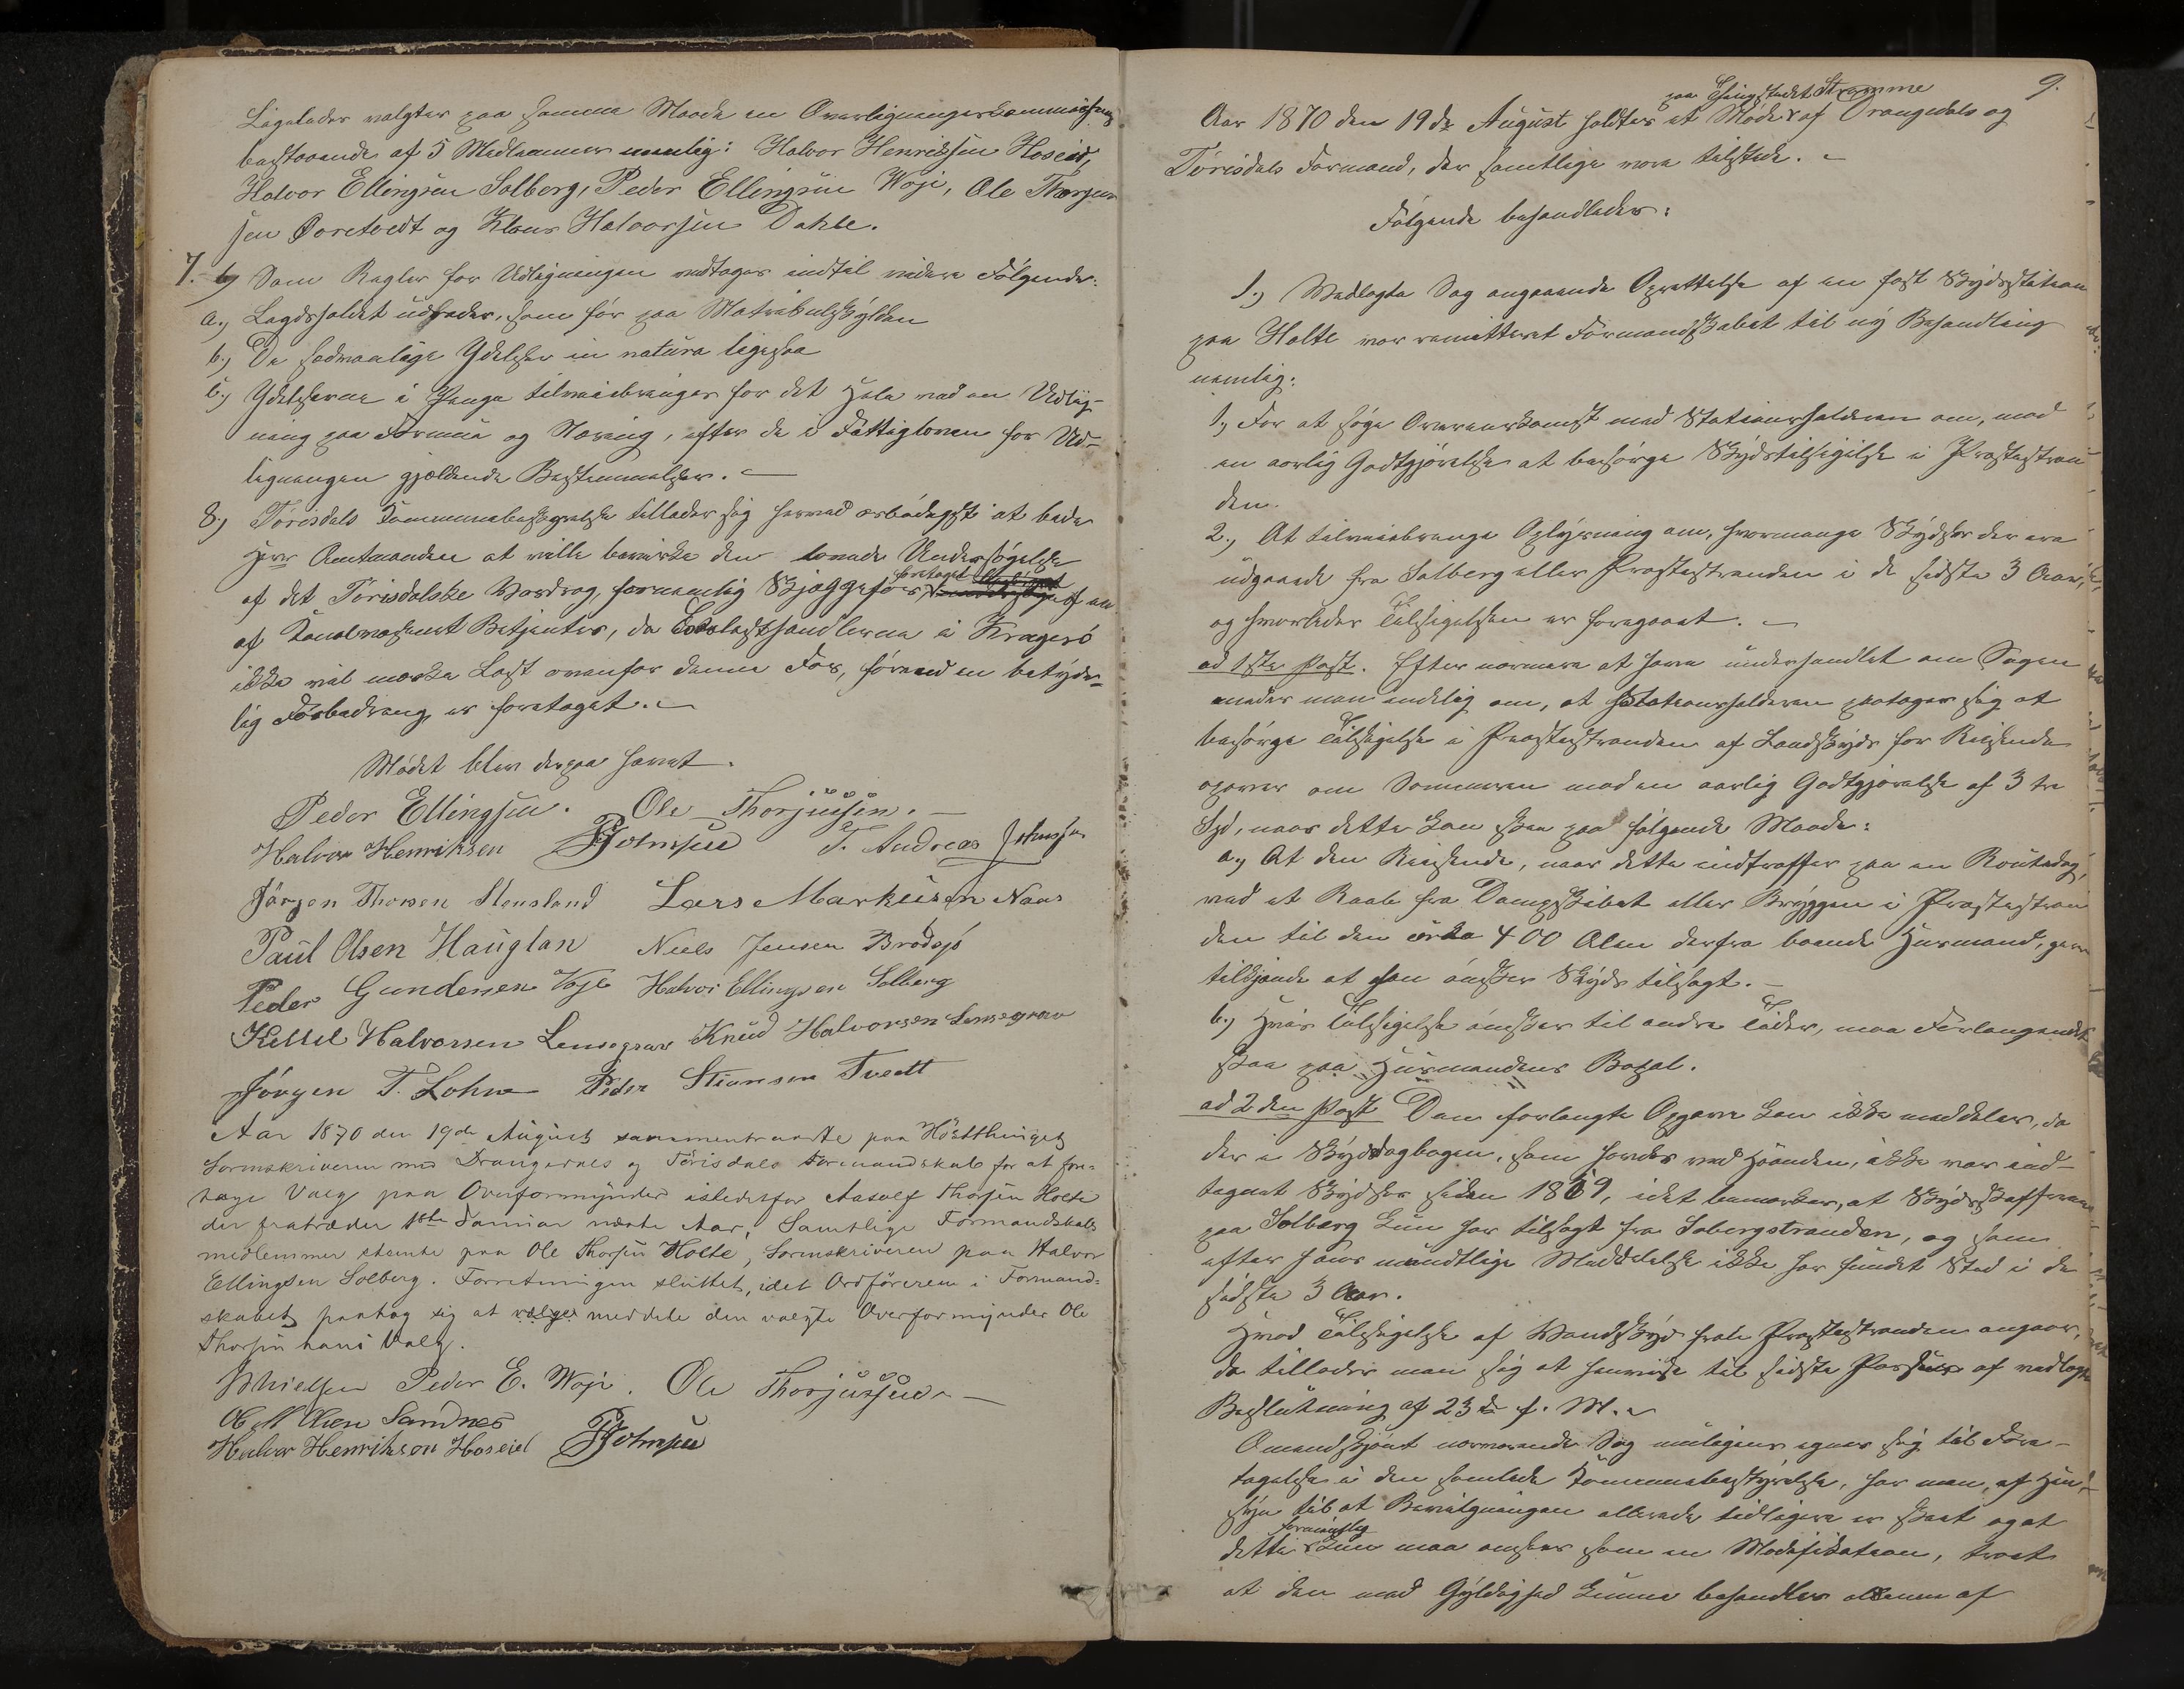 Ligeledes valgtes paa samme Maade en Overligningskommission
bestaaende af 5 Medlemmer nemlig: Halvor Henriksen Hoseid,
Halvor Ellingsen Solberg, Peder Ellingsen Woje, Ole Thorjus-
sen Øvretvedt og Klaus Halvorsen Dahle.
7. Som Regler for Udligningen vedtoges indtil videre Følgende:
a.) Lægdsholdet udredes, som før paa Matrikulskylden
b.) De sædvanlige Ydelser in natura ligesaa
c.) Ydelserne i Penge tilveiebringes for det Hele ved en Udlig-
ning paa Formue og Næring, efter de i Fattigloven for Ud-
ligningen gjældende Bestemmelser.
8.) Tørisdals Kommunebestyrelse tillader sig herved ærbødigst at bede
Herr Amtmanden at ville bevirke den lovede Undersøgelse
af det Tørisdalske Vasdrag, fornemlig Skjeggefos, foretaget af en
af Kanalvæsenet Betjenter, da Trælasthandlerne i Kragerø
ikke vil mærke Last ovenfor denne Fos, førend en betyde-
lig Forbedring er foretaget.
Mødet blev derpaa hævet.
Peder Ellingsen. Ole Thorjussen.
Halvor Henriksen T. Andreas Johnsen
Jørgen Thorsen Stensland Lars Markusen Naas
Paul Olsen Hauglan Niels Jensen Brødsjø
Peder Gundersen Voje Halvor Ellingsen Solberg
Kettel Halvorsen Lensegrav Knud Halvorsen Lensegrav
Jørgen T. Lohne Peder Stiansen Tvedt
Aar 1870 den 19de August sammentraadte paa Høstthinget
Sorenskriveren med Drangedals og Tørisdals Formandskab for at fore-
tage Valg paa Overformynder istedetfor Aasolf Thorsen Holte
der fratræder 1ste Januar næste Aar, Samtlige Formandskabs
medlemmer stemte paa Ole Thorsen Holte, Sorenskriveren paa Halvor
Ellingsen Solberg. Forretningen sluttet, idet Ordføreren i Formand-
skabet paatog sig at vælges meddele den valgte Overformynder Ole
Thorsen hans Valg.
Peder E. Woje. Ole Thorjussen
Ole M Olsen Sandnes
Halvor Henrikson Hoseid
9.
paa Thingstedet Stramme
Aar 1870 den 19de August holdtes et Møde af Drangedals og
Tørisdals Formænd, der samtlige vare tilstede.
Følgende behandledes:
1.) Vedlagte Sag angaaende Oprettelse af en fast Skydsstation
paa Holte var remitteret Formandskabet til ny Behandling
nemlig:
1.) For at søge Overenskomst med Stationsholderen om, mod
en aarlig Godtgjørelse at besørge Skydstilsigelse i Prestestran
den.
2.) At tilveiebringe Oplysning om, hvormange Skydser der ere
udgaaede fra Solberg eller Prestestranden i de sidste 3 Aar,
og hvorledes Tilsigelsen er foregaaet.
ad 1ste Post. Efter nærmere at have underhandlet om Sagen
enedes man endelig om, at Stationsholderen paatager sig at
besørge Tilsigelse i Prestestranden af Landskyds for Reisende
opover om Sommeren mod en aarlig Godtgjørelse af 3 tre
Spd, naar dette kan skee paa følgende Maade:
a.) At den Reisende, naar dette indtræffer paa en Routedag,
ved et Raab fra Dampskibet eller Bryggen i Prestestran
den til den cirka 400 Alen derfra boende Husmand, gives
tilkjende at han ønsker Skyds tilsagt.
b.) Hvis Tilsigelse ønskes til andre Tider, maa Forlangendet
skee paa Husmandens Bopæl.
ad 2den Post Den forlangte Opgave kan ikke meddeles, da
der i Skydsdagbogen, som haves ved Haanden, ikke var ind-
tegnet Skydser siden 1869, idet bemærkes, at Skydsskafferen
paa Solberg kun har tilsagt fra Sobergstranden, og som
efter hans mundtlige Meddelelse ikke har fundet Sted i de
sidste 3 Aar.
Hvad Tilsigelse af Vandskyds fra Prestestranden angaar,
da tillader man sig at henvise til sidste Passus af vedlagte
Beslutning af 23de f. M.
Omendskjønt nærværende Sag muligens egner sig til Fore-
tagelse i den samlede Kommunebestyrelse, har man, af Hen-
syn til at Bevilgningen allerede tidligere er skeet og at
formentlig
dette kun maa ansees som en Modifikation, troet
at den med Gyldighed kunne behandles alene af